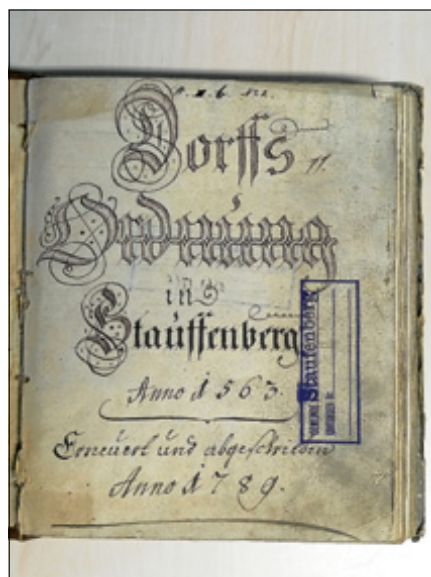 Dorffs
11.
Ordnúng
in
Staúffenberg
Anno 1563.
Erneúert und abgeschriben
Anno 1789.
Gemeinde Staufenberg